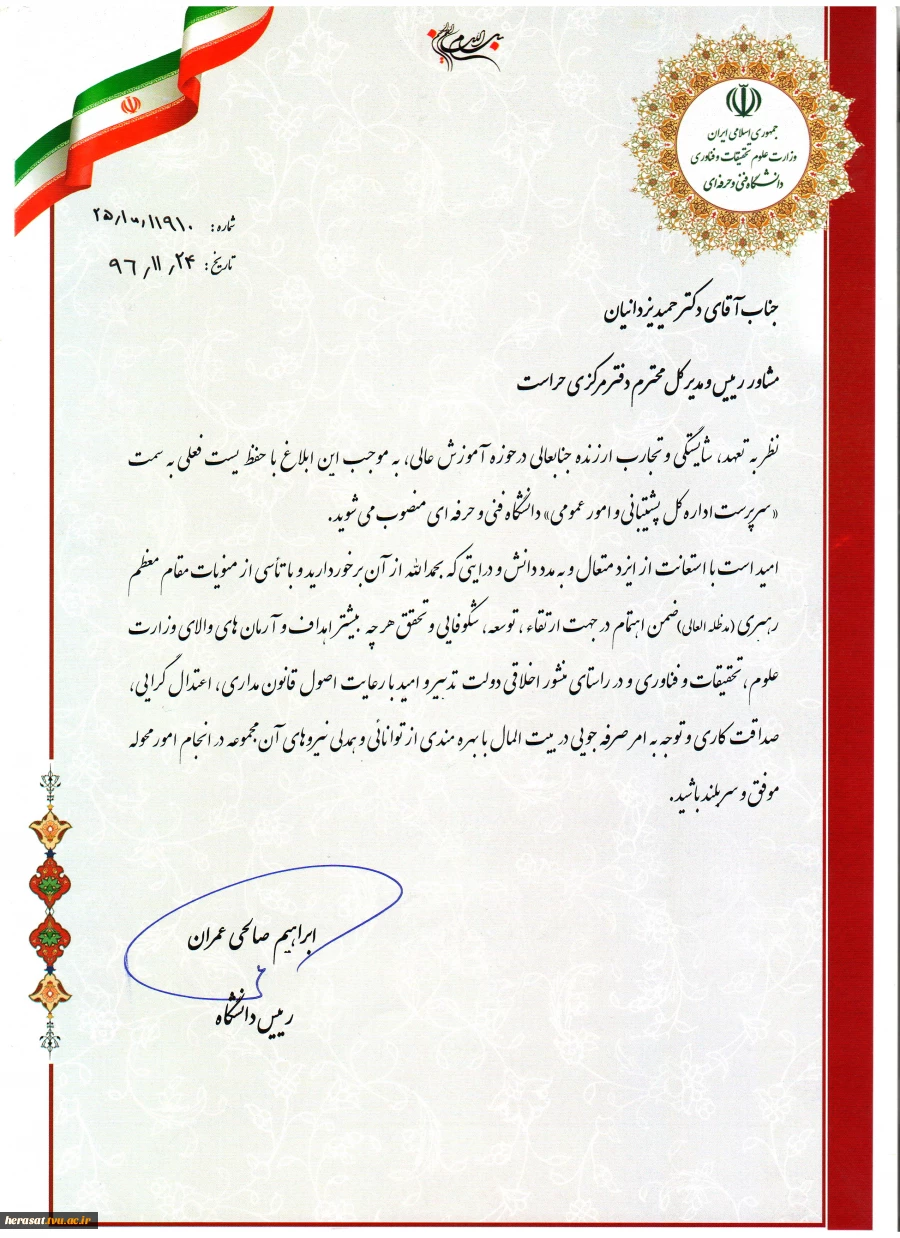 بسم الله الرحمن الرحیم
جمهوری اسلامی ایران
وزارت علوم تحقیقات و فناوری
دانشگاه فنی و حرفه ای
شماره: ۲۵٫۱۰٫۱۱۹۱۰
تاریخ: ۹۶٫۱۱٫۲۴
جناب آقای دکتر حمید یزدانیان
مشاور رییس و مدیر کل محترم دفتر مرکزی حراست
نظر به تعهد، شایستگی و تجارب ارزنده جنابعالی در حوزه آموزش عالی، به موجب این ابلاغ با حفظ پست فعلی به سمت
«سرپرست اداره کل پشتیبانی و امور عمومی» دانشگاه فنی و حرفه ای منصوب می شوید.
امید است با استعانت از ایزد متعال و به مدد دانش و درایتی که بحمدالله از آن برخوردارید و با تأسی از منویات مقام معظم
رهبری (مدظله العالی) ضمن اهتمام در جهت ارتقاء، توسعه، شکوفایی و تحقق هر چه بیشتر اهداف و آرمان های والای وزارت
علوم، تحقیقات و فناوری و در راستای منشور اخلاقی دولت تدبیر و امید با رعایت اصول قانون مداری، اعتدال گرایی،
صداقت کاری و توجه به امر صرفه جویی در بیت المال با بهره مندی از توانائی و همدلی نیروهای آن مجموعه در انجام امور محوله
موفق و سربلند باشید.
ابراهیم صالحی عمران
رییس دانشگاه
herasat.tvu.ac.ir